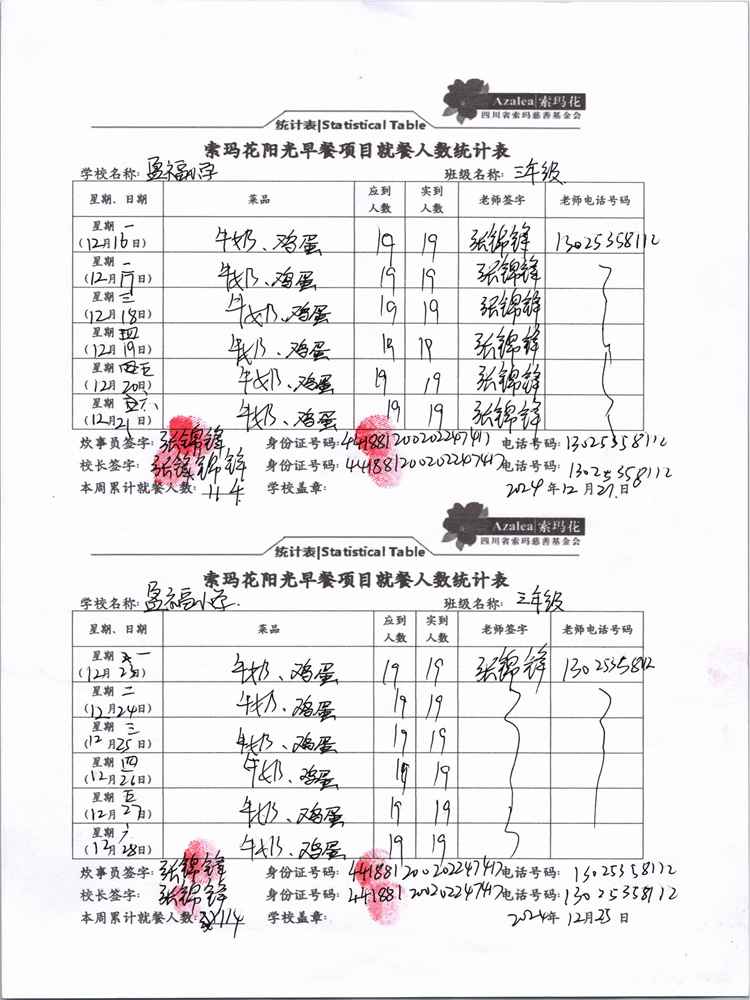 Azalea 索玛花
四川省索玛慈善基金会
统计表|Statistical Table
索玛花阳光早餐项目就餐人数统计表
学校名称: 盈福小学 班级名称: 三年级
星期、日期 菜品 应到人数 实到人数 老师签字 老师电话号码
星期 一 (12月16日) 牛奶、鸡蛋 19 19 张锦锋 13025358112
星期 (12月17日) 牛奶、鸡蛋 19 19 张锦锋
星期 三 (12月18日) 牛奶、鸡蛋 19 19 张锦锋
星期 四 (12月19日) 牛奶、鸡蛋 19 19 张锦锋
星期 五 (12月20日) 牛奶、鸡蛋 19 19 张锦锋
星期 六 (12月21日) 牛奶、鸡蛋 19 19 张锦锋
炊事员签字: 张锦锋 身份证号码: 电话号码: 13025358112
校长签字: 张锦锋 身份证号码: 电话号码: 13025358112
本周累计就餐人数: 114 学校盖章: 2024年12月21日
Azalea 索玛花
四川省索玛慈善基金会
统计表|Statistical Table
索玛花阳光早餐项目就餐人数统计表
学校名称: 盈福小学 班级名称: 三年级
星期、日期 菜品 应到人数 实到人数 老师签字 老师电话号码
星期 一 (12月23日) 牛奶、鸡蛋 19 19 张锦锋 13025358112
星期 二 (12月24日) 牛奶、鸡蛋 19 19
星期 三 (12月25日) 牛奶、鸡蛋 19 19
星期 四 (12月26日) 牛奶、鸡蛋 19 19
星期 五 (12月27日) 牛奶、鸡蛋 19 19
星期 六 (12月28日) 牛奶、鸡蛋 19 19
炊事员签字: 张锦锋 身份证号码: 电话号码: 13025358112
校长签字: 张锦锋 身份证号码: 电话号码: 13025358112
本周累计就餐人数: 114 学校盖章: 2024年12月25日